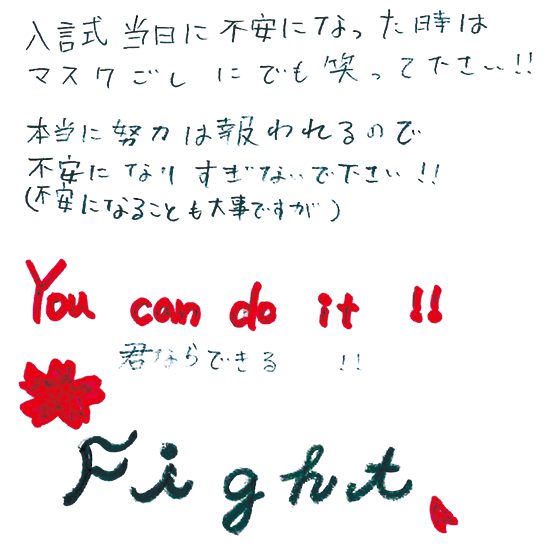 入言式 当日に 不安になった時は
マスクごしにでも笑って下さい!!
本当に努力は報われるので
不安になりすぎないで下さい!!
(不安になることも大事ですが)
You can do it !!
君ならできる !!
Fight